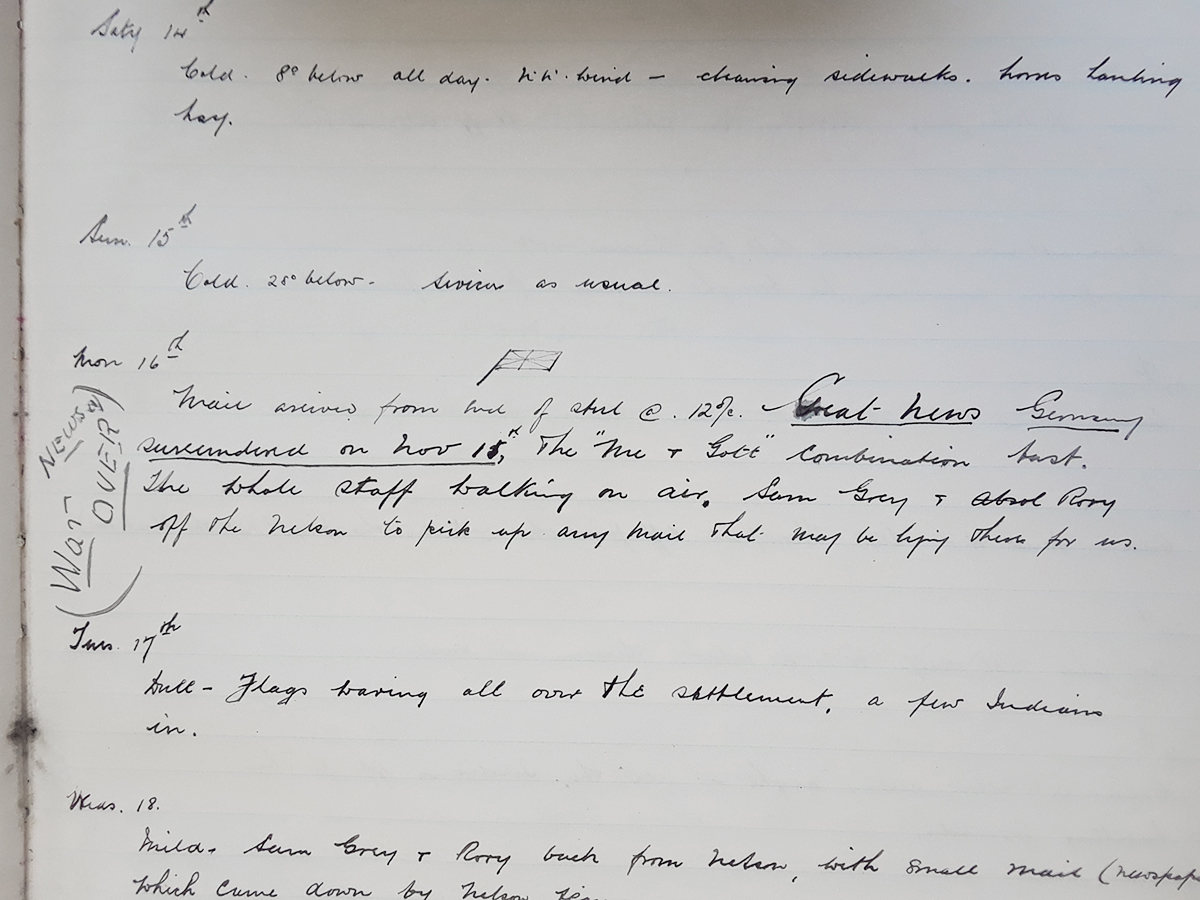 Saty 14th
Cold. 8° below all day. N.W. wind - cleaning sidewalks. horses hauling
hay.
Sun. 15th
Cold. 28° below - services as usual.
Mon 16th
Mail arrived from end of steel @. 12 o/c. Great News Germany
surrendered on Nov 15th, The "Me & Gott" combination bust.
The whole staff walking on air. Sam Grey & Rory
off the Nelson to pick up any mail that may be lying there for us.
(War NEWS OVER)
Tues. 17th
Dull - Flags waving all over the settlement, a few Indians
in.
Weds. 18.
Mild. Sam Grey & Rory back from Nelson, with small mail (newspape
which came down by Nelson